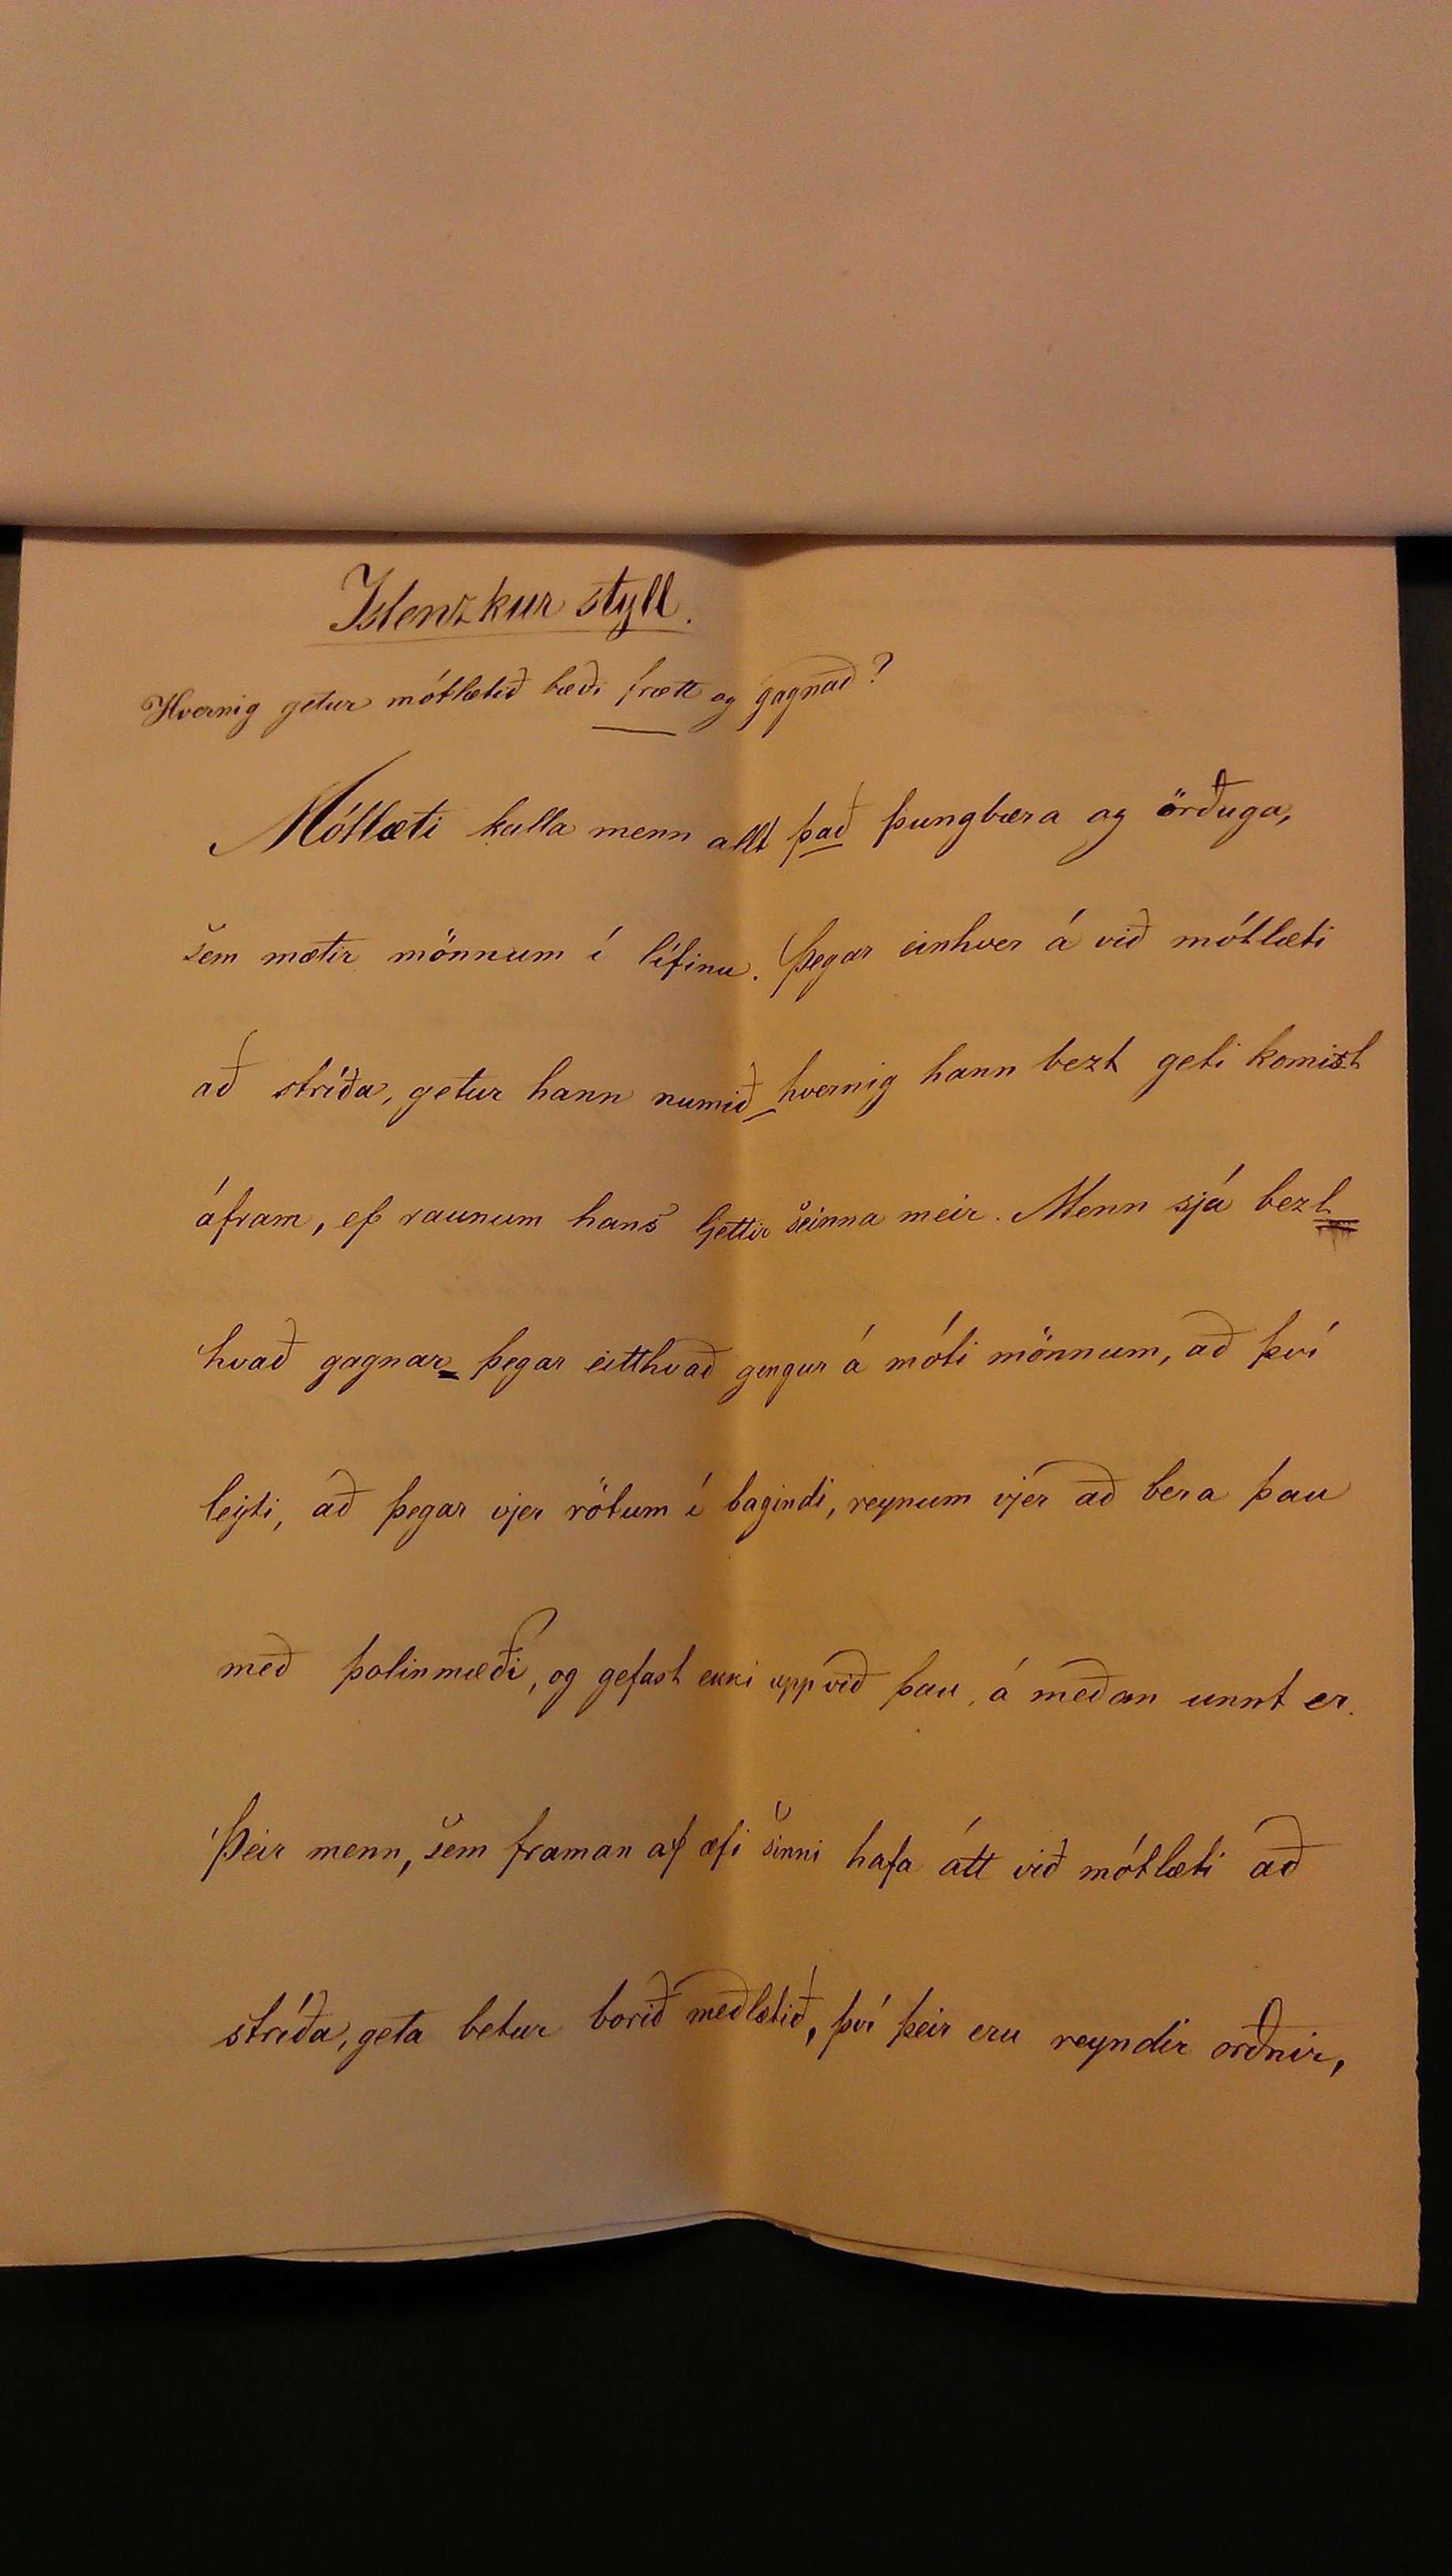 Islenzkur styll.
Hvernig getur mótlætið bæði frætt og gagnað?
Mótlæti kalla menn allt það þungbæra og örðuga,
sem mætir mönnum í lífinu. Þegar einhver á við mótlæti
að stríða, getur hann numið hvernig hann bezt geti komist
áfram, ef raunum hans ljettir seinna meir. Menn sjá bezt
hvað gagnar þegar eitthvað gengur á móti mönnum, að því
leyti, að þegar vjer rötum í bagindi, reynum vjer að bera þau
með þolinmæði, og gefast ekki upp við þau, á meðan unnt er.
Þeir menn, sem framan af æfi sinni hafa átt við mótlæti að
stríða, geta betur borið meðlætið, því þeir eru reyndir orðnir,